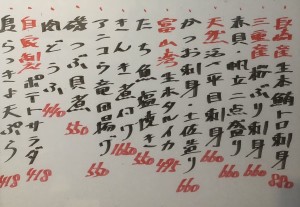 長崎産生本鮪トロ刺身 880
三重産桜ぶり刺身 660
春貝帆立二点盛り 660
天然真鯛平政刺身 660
かつお刺身・土佐造り 660
富山湾生本タルイカ 495
たち魚塩焼き 550
きんき煮付け 1650
アンコウ竜田揚げ 550
磯つぶ貝煮 550
肉どうふ 440
自家製ポテトサラダ 418
長らっきょ天ぷら 418